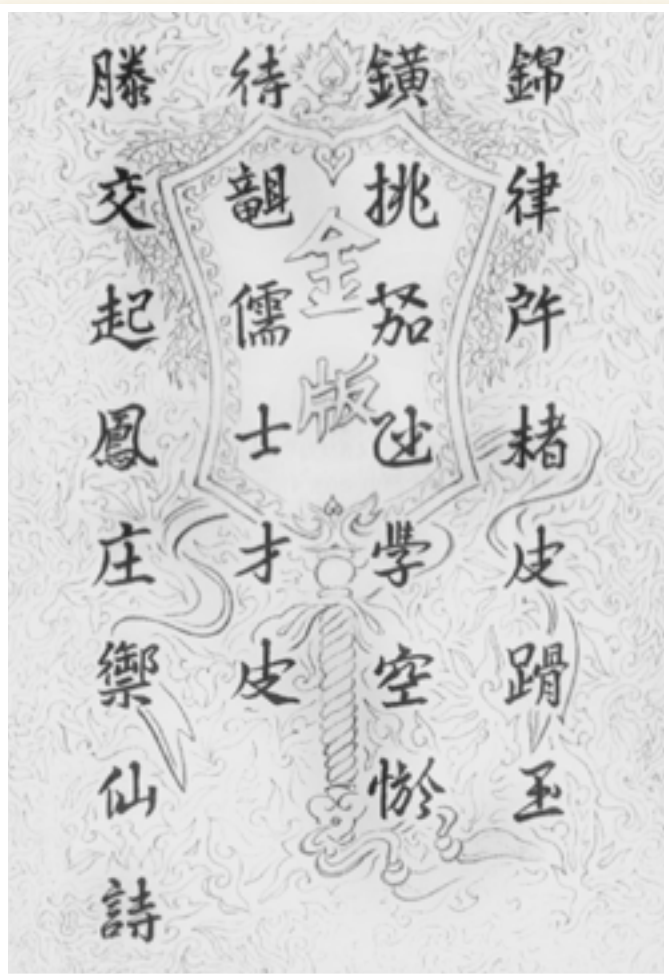 錦律赭皮玉
鐄挑茄學空
待儒士才皮
滕交起鳳庄禦仙詩
金版